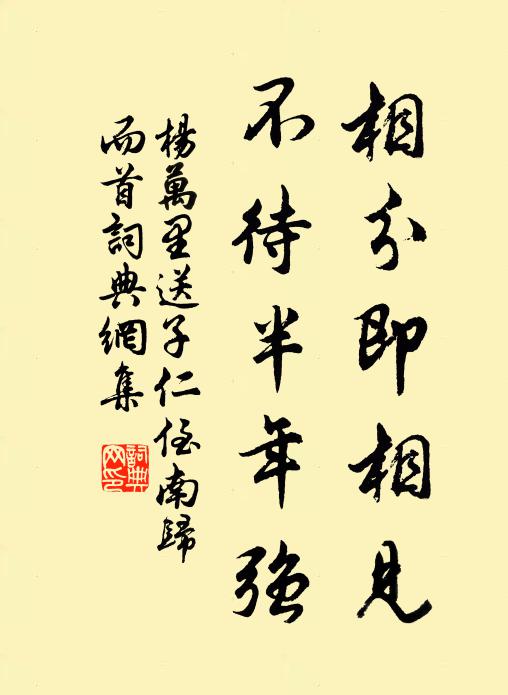 相分即相見
不待半年強
楊萬里送子仁侄南歸
兩首詞典網集
詞典
网印